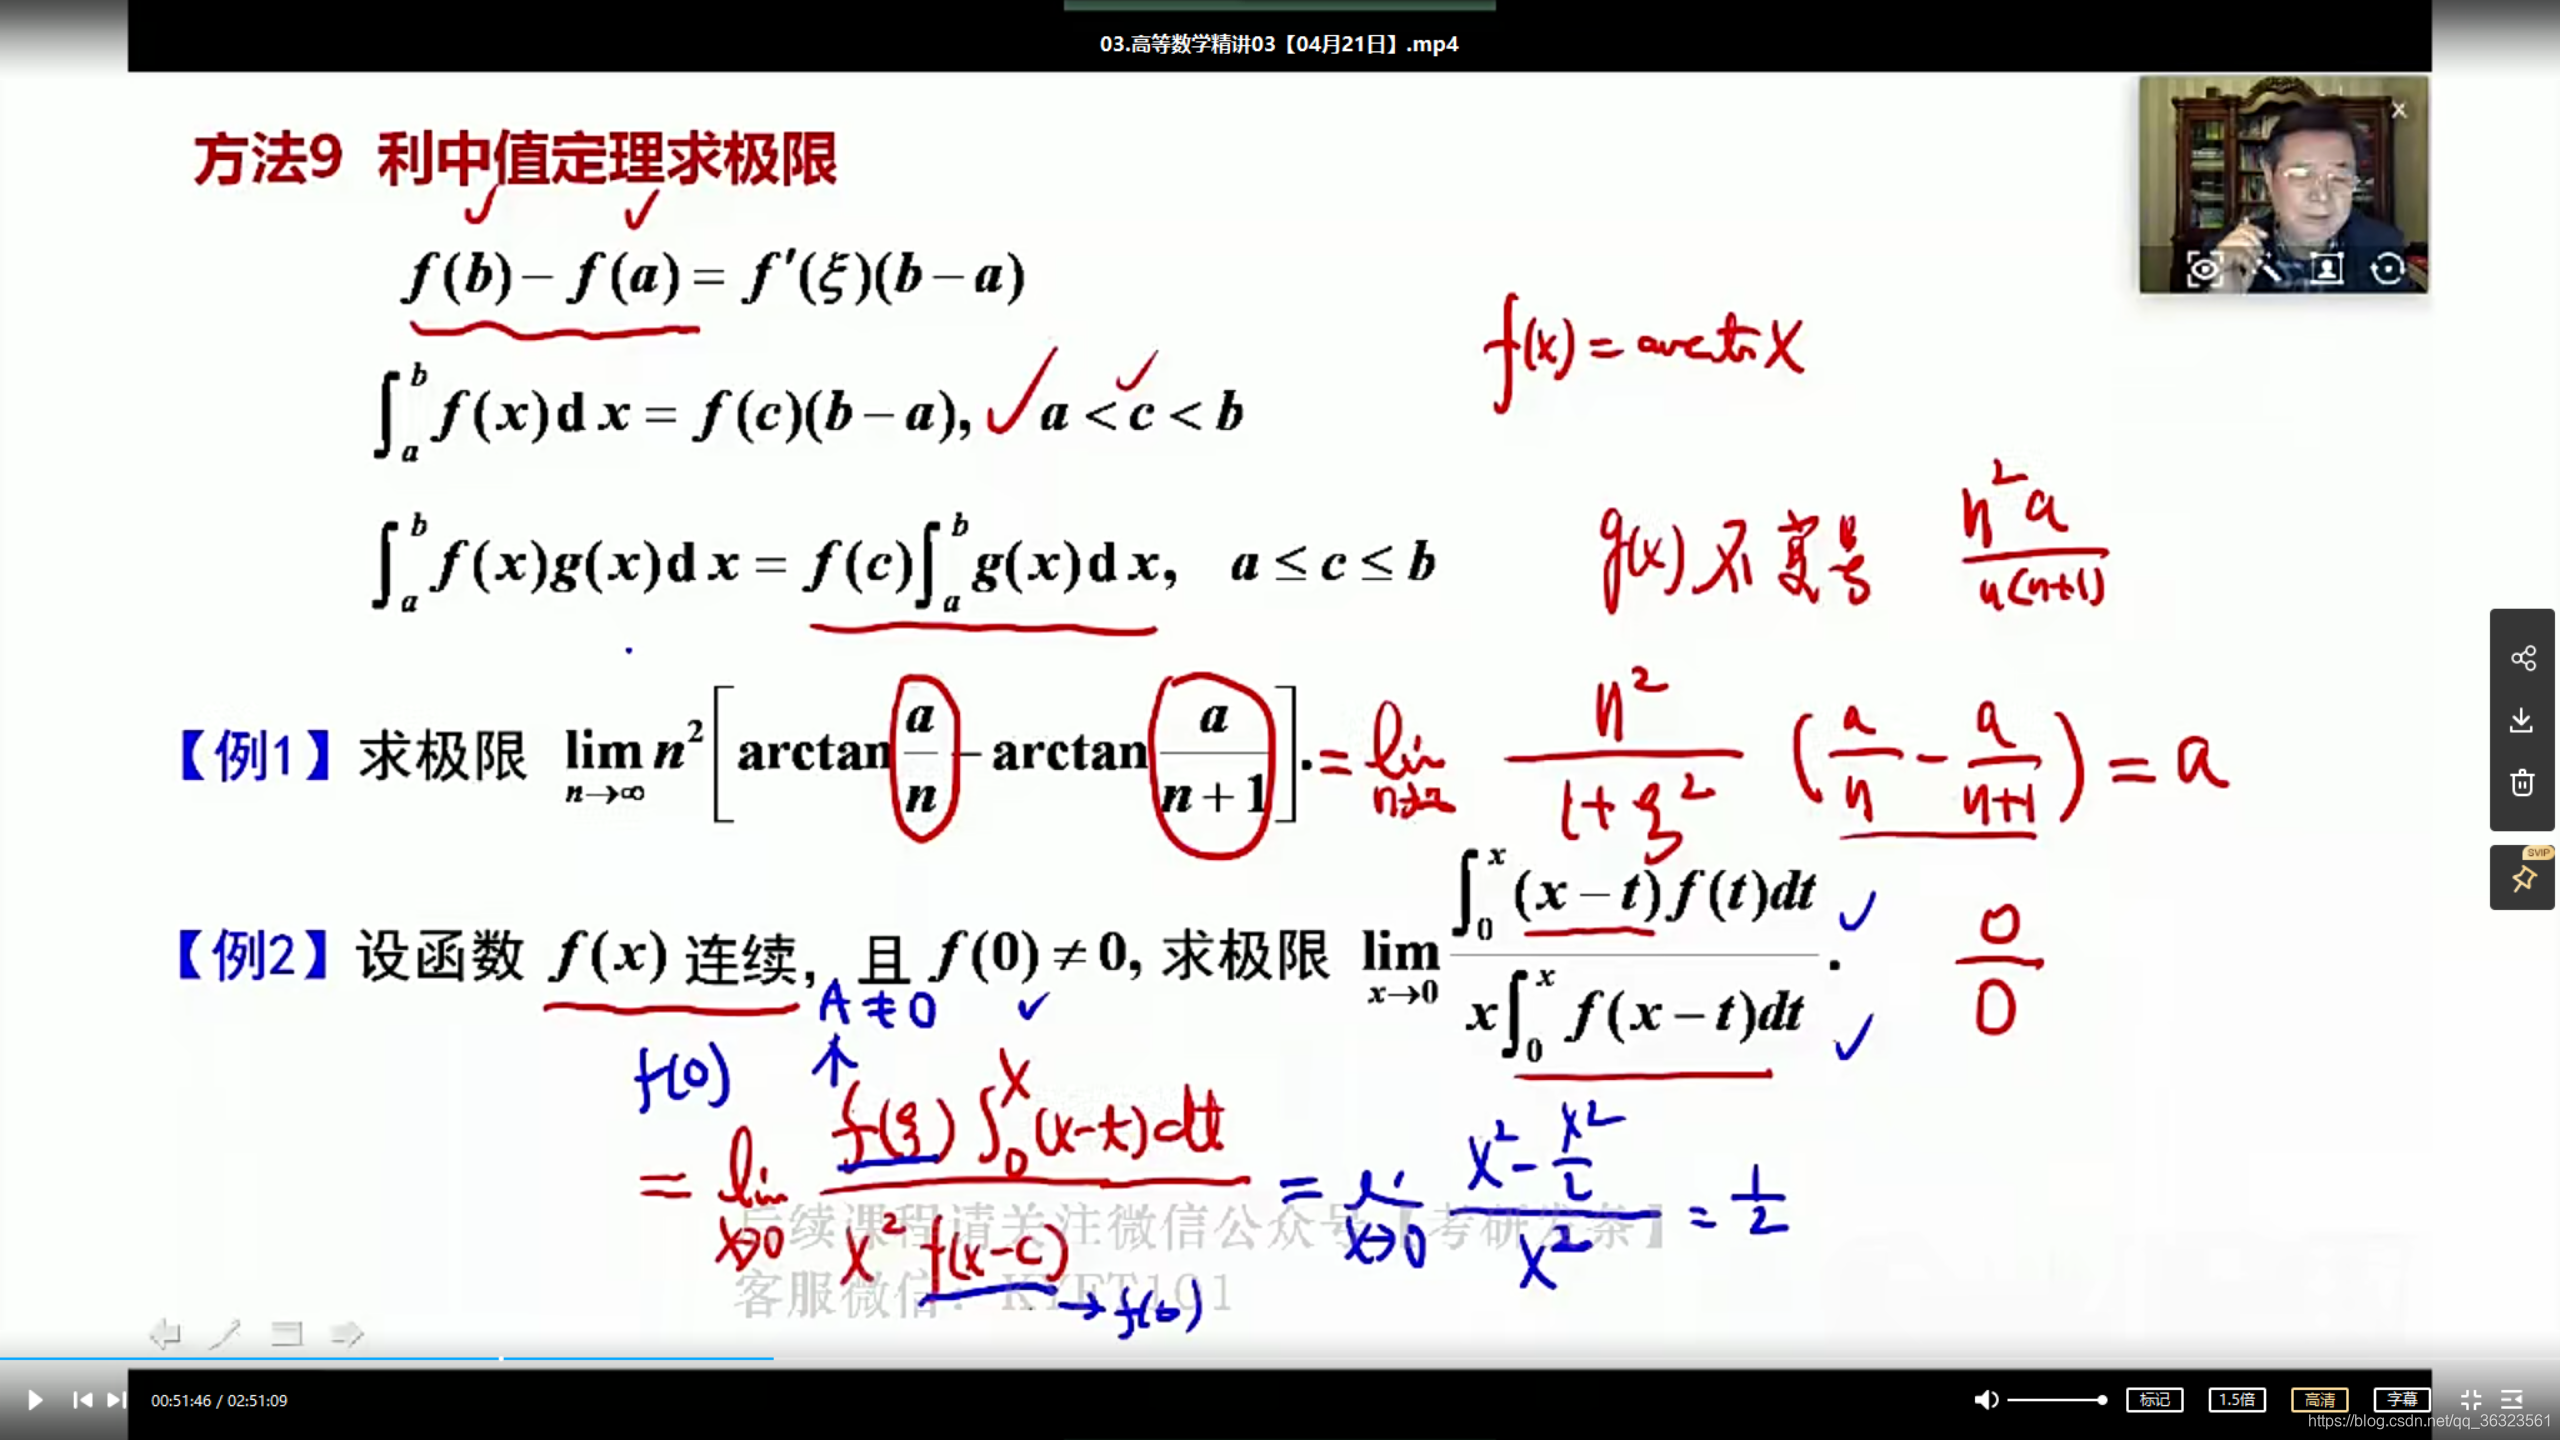 03.高等数学精讲03【04月21日】.mp4
方法9 利中值定理求极限
f(b)−f(a)=f′(ξ)(b−a)
f(x)=arctan x
∫_a^b f(x)dx=f(c)(b−a), a<c<b
∫_a^b f(x)g(x)dx=f(c)∫_a^b g(x)dx, a≤c≤b
g(x)不变号
n²a/n(n+1)
【例1】求极限 lim_{n→∞} n²[arctan a/n − arctan a/(n+1)].
= lim_{n→∞} n²/(1+ξ²) (a/n − a/(n+1)) = a
【例2】设函数 f(x) 连续，且 f(0)≠0, 求极限 lim_{x→0} ∫_0^x (x−t)f(t)dt / x∫_0^x f(x−t)dt.
0/0
A≠0
f(0)
= lim_{x→0} f(ξ)∫_0^x (x−t)dt / x² f(x−c)
= lim_{x→0} (x² − x²/2)/x² = 1/2
→ f(0)
后续课程请关注微信公众号【考研发条】
客服微信：KYFT101
SVIP
00:51:46 / 02:51:09
标记
1.5倍
高清
字幕
https://blog.csdn.net/qq_36323561